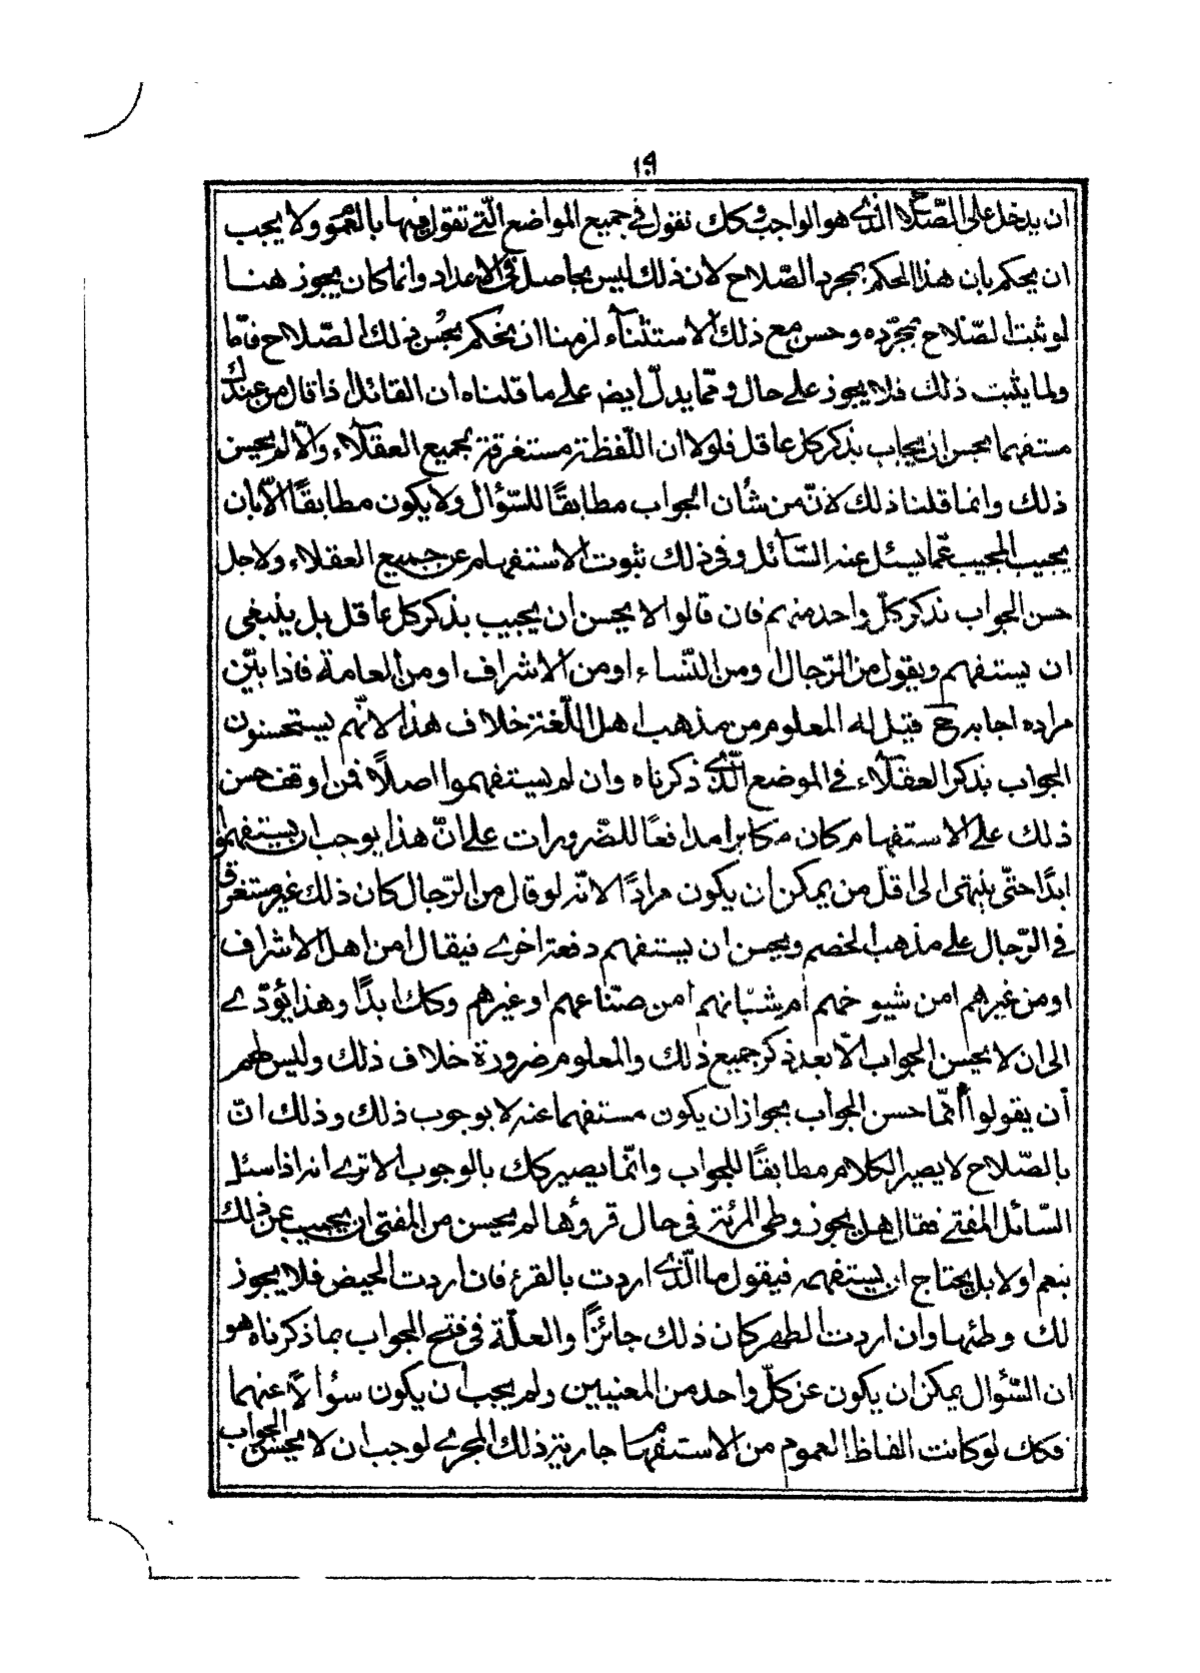 ١٠٩
ان يدخل على الصّلاح الذى هو الواجب وكك نقول فى جميع المواضع الّتى تقول فيها بالعموم ولا يجب
ان يحكم بان هذا الحكم بمجرد الصّلاح لان ذلك ليس بحاصل فى الاعداد وانما كان يجوز هنا
لو ثبت الصّلاح بمجرّده وحسن مع ذلك الاستثناء لزمنا ان نحكم بحسن ذلك الصّلاح فامّا
ولما يثبت ذلك فلا يجوز على حال وممّا يدلّ ايضا على ما قلناه ان القائل اذا قال من عندك
مستفهما يحسن ان يجاب بذكر كل عاقل فلولا ان اللّفظة مستغرقة لجميع العقلاء والّا لم يحسن
ذلك وانما قلنا ذلك لانّ من شأن الجواب مطابقًا للسّؤال ولا يكون مطابقًا الّا بان
يجيب المجيب عمّا يسئل عنه السّائل وفى ذلك ثبوت الاستفهام عن جميع العقلاء ولاجل
حسن الجواب بذكر كلّ واحد منهم فان قالوا لا يحسن ان يجيب بذكر كل عاقل بل ينبغى
ان يستفهم ويقول من الرّجال او من النّساء او من الاشراف او من العامة فاذا بيّن
مراده اجابه ح قيل له المعلوم من مذهب اهل اللّغة خلاف هذا لانّهم يستحسنون
الجواب بذكر العقلاء فى الموضع الّذى ذكرناه وان لم يستفهموا اصلًا فمن اوقف حسن
ذلك على الاستفهام كان مكابرا مدافعًا للضّرورات على انّ هذا يوجب ان يستفهموا
ابدًا حتّى ينتهى الى اقلّ من يمكن ان يكون مرادًا لانّه لو قال من الرّجال كان ذلك غير مستغرق
فى الرّجال على مذهب الخصم ويحسن ان يستفهم دفعة اخرى فيقال امن اهل الاشراف
او من غيرهم امن شيوخهم ام شبّانهم امن صنّاعهم او غيرهم وكك ابدًا وهذا يؤدّى
الى ان لا يحسن الجواب الّا بعد ذكر جميع ذلك والمعلوم ضرورة خلاف ذلك وليس لهم
أن يقولوا انّما حسن الجواب بجواز ان يكون مستفهما عنه لا بوجوب ذلك وذلك انّ
بالصّلاح لا يصير الكلام مطابقًا للجواب وانّما يصير كك بالوجوب الا ترى انه اذا سئل
السّائل المفتى فقال هل يجوز وطى المرئة فى حال قروئها لم يحسن من المفتى ان يجيب عن ذلك
بنعم او لا بل يحتاج ان يستفهمه فيقول ما الّذى اردت بالقرء فان اردت الحيض فلا يجوز
لك وطئها وان اردت الطهر كان ذلك جائزًا والعلّة فى قبح الجواب بما ذكرناه هو
ان السّؤال يمكن ان يكون عن كلّ واحد من المعنيين ولم يجب أن يكون سؤالًا عنهما
فكك لو كانت الفاظ العموم من الاستفهام جارية ذلك المجرى لوجب ان لا يحسن الجواب